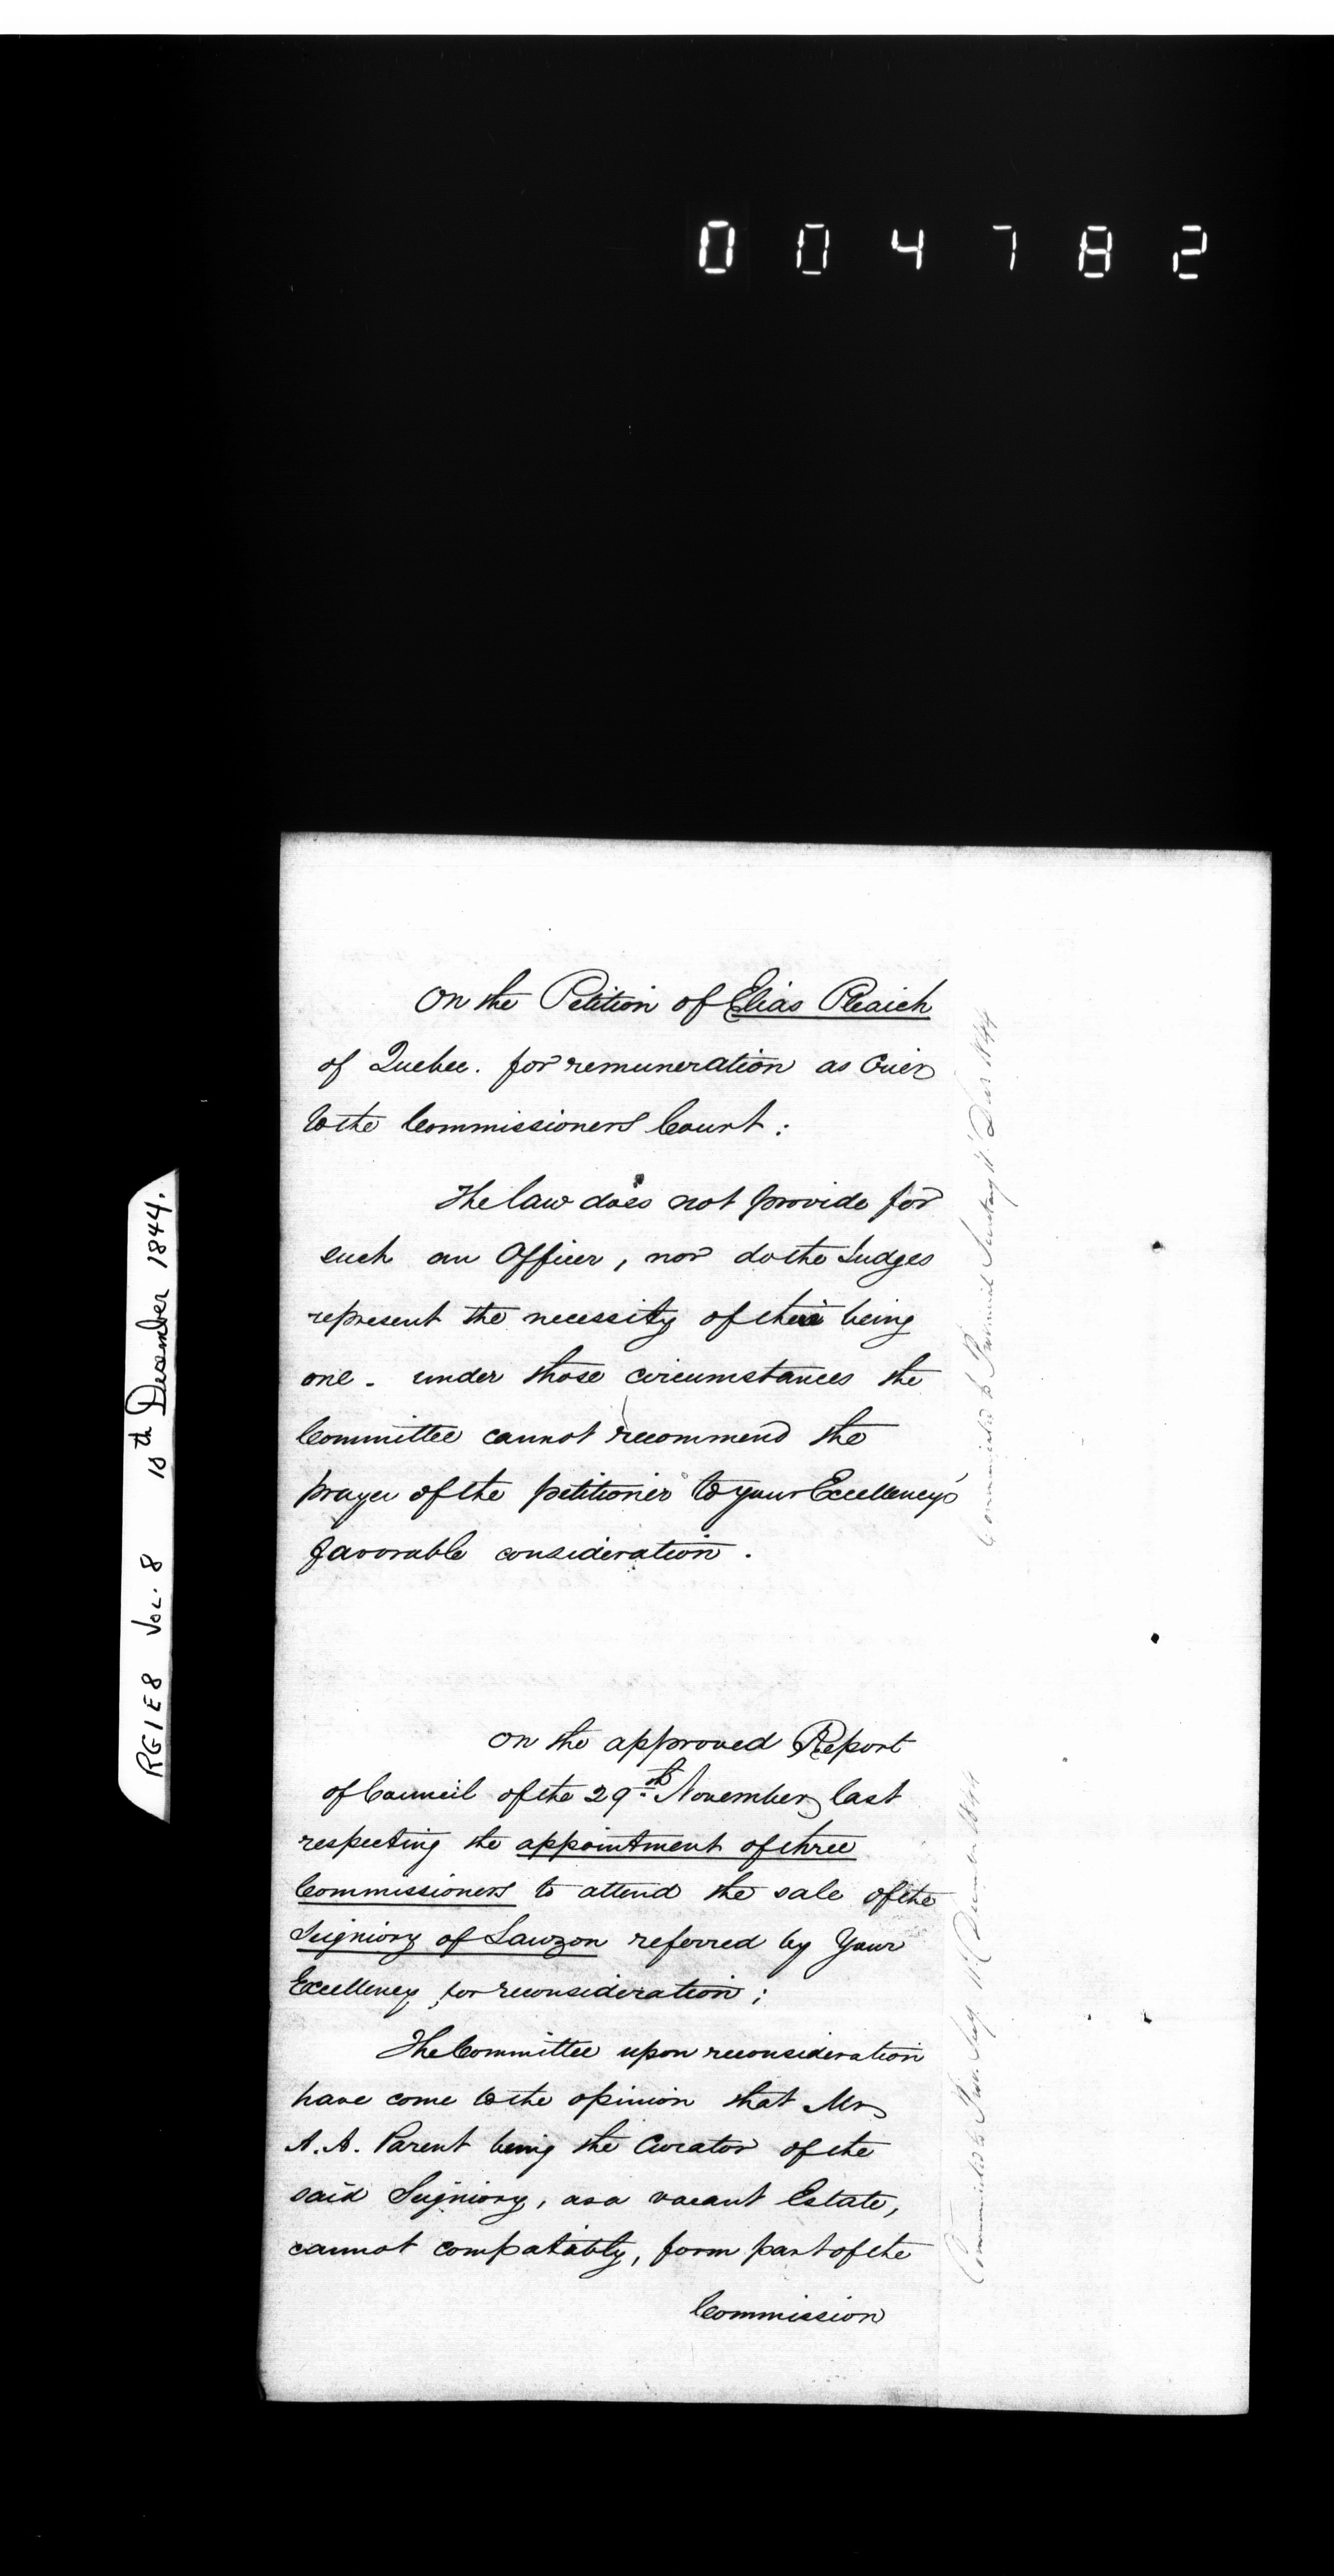 004782
RG1E8 Vol. 8 10th December 1844.
On the Petition of Elias Pleaich
of Quebec. for remuneration as Crier
to the Commissioners Court :
The law does not provide for
such an Officer, nor do the Judges
represent the necessity of their being
one. under those circumstances the
Committee cannot recommend the
prayer of the petitioner to your Excellency's
favorable consideration.
Communicated to Provincial Secretary 11 Decr 1844
On the approved Report
of Council of the 29th November last
respecting the appointment of three
Commissioners to attend the sale of the
Seigniory of Lauzon referred by Your
Excellency for reconsideration ;
The Committee upon reconsideration
have come to the opinion that Mr
A. A. Parent being the Curator of the
said Seigniory, as a vacant Estate,
cannot compatably, form part of the
Commission
Communicated to Prov. Secy. 11 December 1844